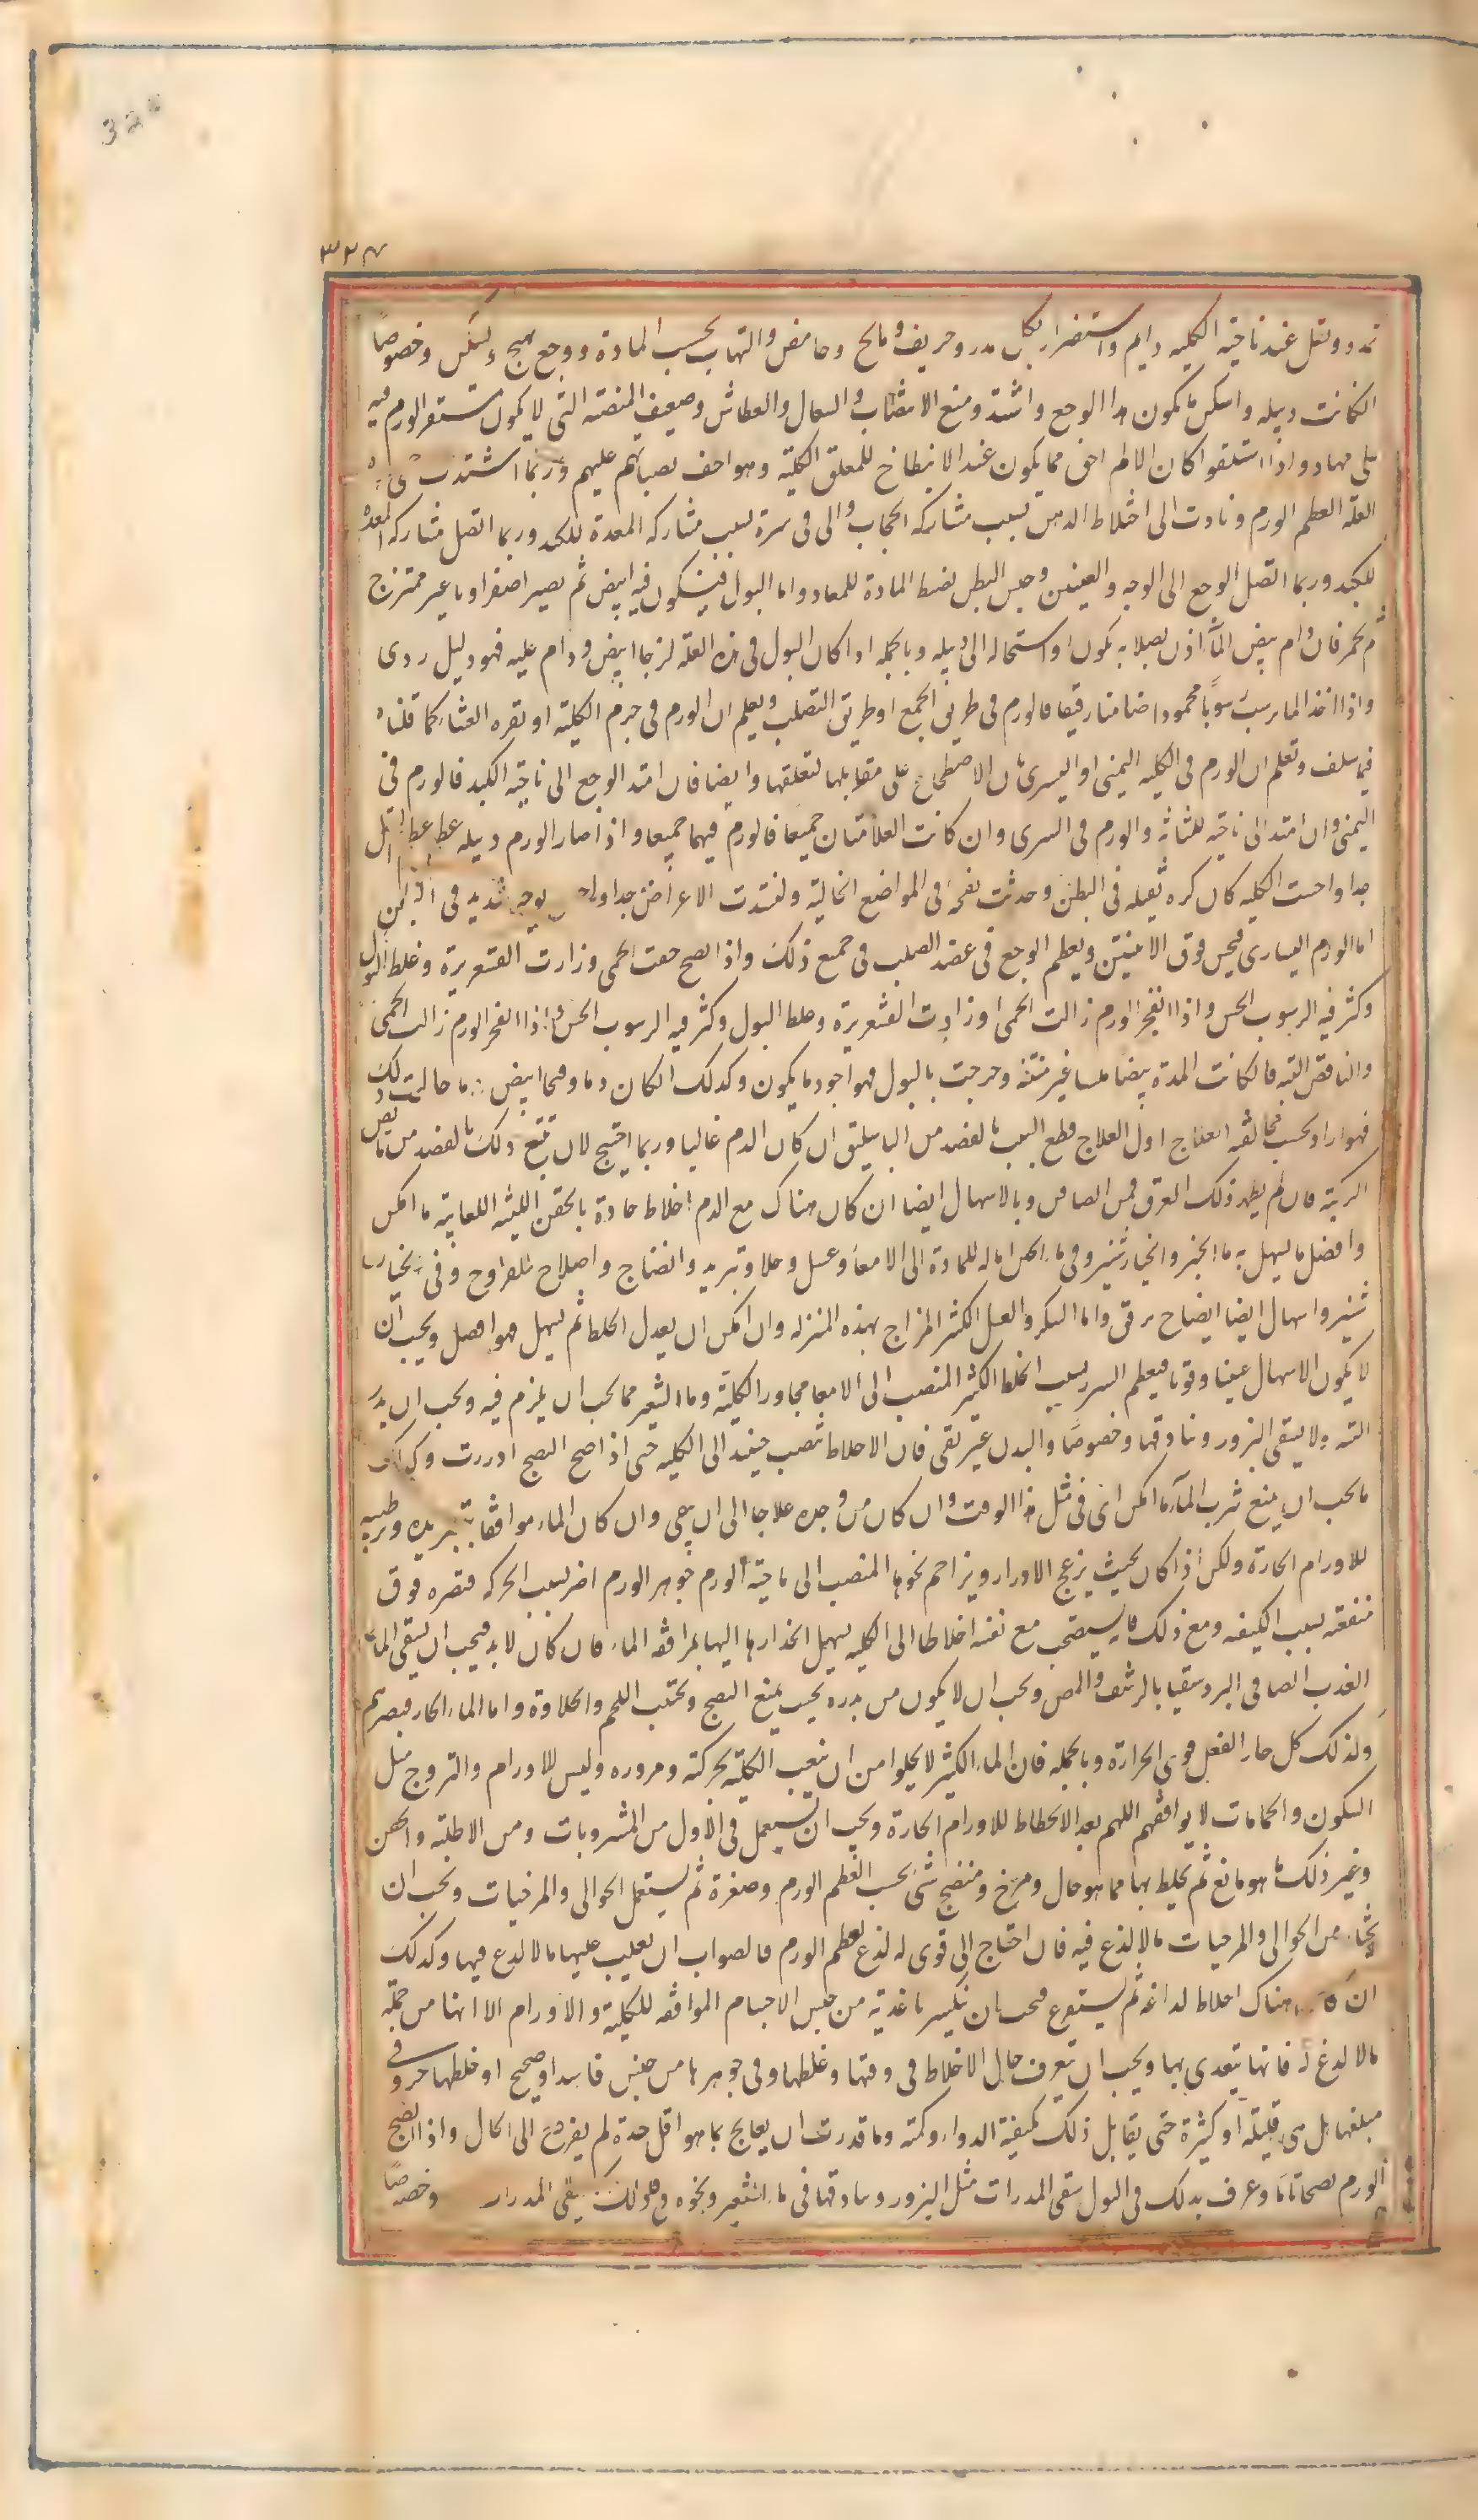 324
٣٢٧
تمدد وثقل عند ناحية الكليه دايم واستضرار بكل مدر وحريف ومالح وحامض والتهاب بحسب المادة ووجع يهيج ويسكن وخصوصًا
انكانت دبيله واسكن ما يكون هذا الوجع واشتد ومنع الانتصاب والسعال والعطاس وضعيف المنصته التى لا يكون يستقر الورم فيه
على مهاد واذا استلقوا كان الالم اخف مما يكون عند الانبطاح للمعلق الكلية وهو اخف نصباتهم عليهم وربما اشتدت
العلة العظم الورم وتادت الى اختلاط الذهن بسبب مشاركة الحجاب والى قى مرة بسبب مشاركه المعدة للكبد وربما اتصل مشاركه المعدة
للكبد وربما اتصل الوجع الى الوجه والعينين وحبس البطن لضغط المادة للمعا واما البول فيكون فيه ابيض ثم يصير اصفر او ما غير ممتزج
ثم يحمر فان دام بيض الماء اذن بصلابه يكون او استحاله الى دبيله وبالجمله اذا كان البول فى هذه العلة لزجا ابيض ودام عليه فهو دليل ردى
واذا اخذ الما يرسب سوبًا محمودا ضامنا رقيقا فالورم فى طريق الجمع او طريق التصلب ويعلم ان الورم فى جرم الكلية او بقره الغشا كما قلناه
فيما سلف وتعلم ان الورم فى الكليه اليمنى او اليسرى بان الاضطجاع على مقابلها لتعلقها وايضا فان امتد الوجع الى ناحية الكبد فالورم فى
اليمنى وان امتد الى ناحيه للمثانه والورم فى اليسرى وان كانت العلامتان جميعا فالورم فيهما جميعا واذا صار الورم دبيله عظم
جدا واحست الكليه كان كره ثقيله فى البطن وحدثت نفخه فى المواضع الخالية ولشتدت الاعراض جدا بوجع شديد فى
اما الورم اليسارى فيحس فوق الانثيين ويعظم الوجع فى عضد الصلب فى جميع ذلك واذا نضج خفت الحمى وزادت القشعريرة وغلظ البول
وكثر فيه الرسوب الحس واذا انفجر الورم زالت الحمى او زادت القشعريرة وغلظ البول وكثر فيه الرسوب الحس اذا انفجر الورم زالت الحمى
والنافض البته فان كانت المدة بيضا ملسا غير منتنه وخرجت بالبول فهو اجود ما يكون وكذلك ان كان دما وقيحا ابيض وما خالف ذلك
فهو اردا وبحسب مخالفته العلاج اول العلاج قطع السبب بالفصد من الباسليق ان كان الدم غالبا وربما احتيج لان يتبع ذلك بالفصد من مابض
الركبة فان لم يظهر ذلك العرق فمن الصافن وبالاسهال ايضا ان كان هناك مع الدم اخلاط حادة بالحقن اللينه اللعابية ما امكن
وافضل ما يسهل به ماء الجبن والخيارشنبر وفى ماء الجبن اماله للمادة الى الامعا وغسل وجلا وتبريد وانضاج واصلاح للقروح وفى الخيار
شنبر واسهال ايضا انضاج برفق واما السكر والعسل الكثير المزاج بهذه المنزلة وان امكن ان يعدل الخلط ثم يسهل فهو افضل ويجب ان
لا يكون الاسهال عنيفا وقويا فيعظم الضرر بسبب الخلط الكثير المنصب الى الامعا مجاور الكلية وماء الشعير مما يجب ان يلزم فيه ويجب ان يدر
البته ولا يسقى البزور وبنادقها وخصوصًا والبدن غير نقى فان الاخلاط تنصب حينئذ الى الكليه حتى اذا صح النضج ادررت وكذلك
ما يجب ان يمنع شرب الماء ما امكن اى فى مثل هذا الوقت وان كان من وجه علاجا الى ان يبقى وان كان الماء موافقا بتبريده وترطيبه
للاورام الحارة ولكن اذا كان بحيث يزعج الادرار ويزاحم نحوها المنصب الى ناحية الورم جوهر الورم اضر بسبب الحركه فتضره فوق
منفعته بسبب الكيفيه ومع ذلك فانه يستصحب مع نفسه اخلاطا الى الكليه يسهل انحدارها اليها بمرافقة الماء فان كان لا بد فيجب ان يسقى الماء
العذب الصافى البرد سقيا بالرشف والمص ويجب ان لا يكون من برده بحيث يمنع النضج ويجتنب اللحم والحلاوة واما الماء الحار فيضرهم
ولذلك كل حار الفعل قوى الحرارة وبالجمله فان الماء الكثير لا يخلوا من ان يتعب الكليه بحركته ومروره وليس للاورام والقروح مثل
السكون والحمامات لا يوافقهم اللهم بعد الانحطاط للاورام الحارة ويجب ان يستعمل فى الاول من المشروبات ومن الاطليه والحقن
وغير ذلك ما هو مانع ثم يخلط بها مما هو حال ومرخ ومنضج شئ بحسب العظم الورم وصغره ثم يستعمل الحوالى والمرخيات ويجب ان
يختار من الحوالى والمرخيات مالا لذع فيه فان احتاج الى قوى له لذع لعظم الورم فالصواب ان يغلب عليها مالا لذع فيها وكذلك
ان كان هناك اخلاط لداغه ثم يستفرغ فيجب ان يكسر باغذية من جنس الاجسام الموافقه للكلية والاورام الا انها من جملة
مالا لدغ له فانها يتغدى بها ويجب ان تعرف حال الاخلاط فى رقتها وغلظها وفى جوهرها من جنس فاسد او صحيح او خلطها حر وفى
مبلغها بل هى قليلة او كثيرة حتى يقابل ذلك بكيفية الدواء وكمته وما قدرت ان يعالج بما هو اقل حدة لم يفزع الى الحال واذا نضج
الورم نضجا تاما وعرف بذلك فى البول سقى المدرات مثل البزور وبنادقها فى ماء الشعير ونحوه يسقى المدرات وخصوصًا